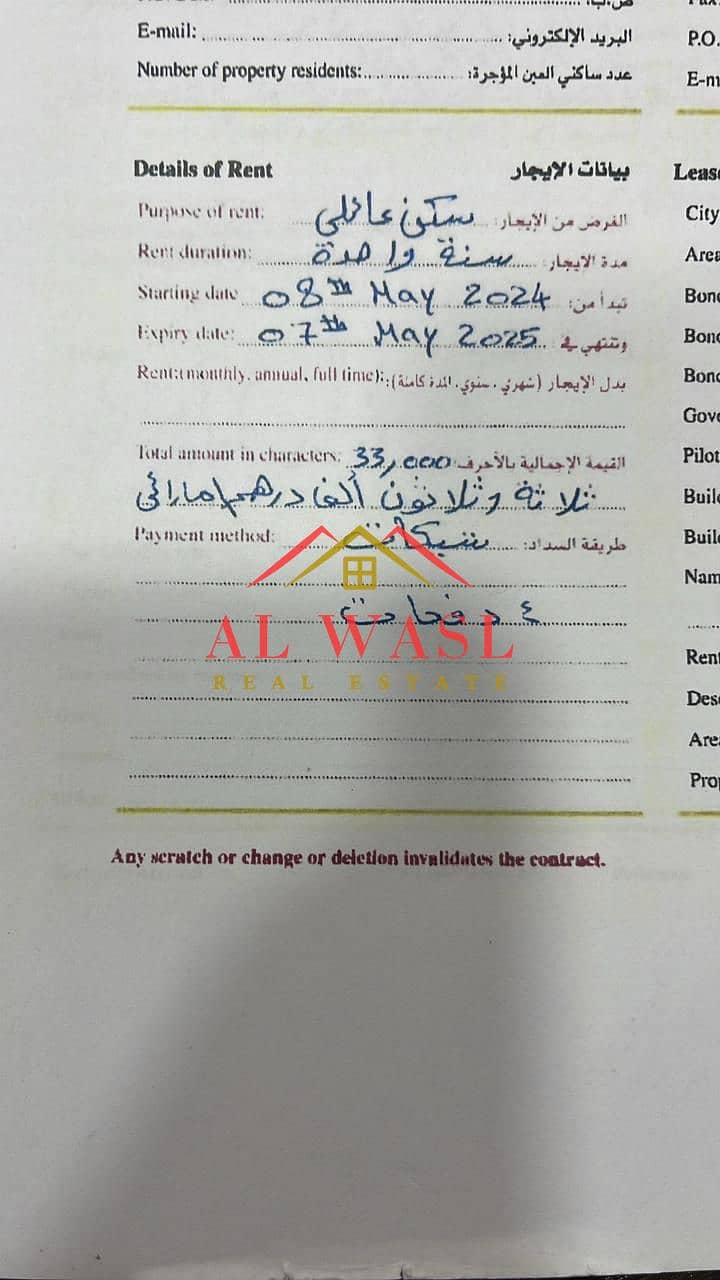 E-mail: البريد الإلكتروني:
P.O.
Number of property residents: عدد ساكني العين المؤجرة:
E-m
Details of Rent بيانات الإيجار
Purpose of rent: سكن عائلي الغرض من الإيجار:
Rent duration: سنة واحدة مدة الايجار:
Starting date 08th May 2024 تبدأ من:
Expiry date: 07th May 2025 وتنتهي في
Rent:(monthly, annual, full time): بدل الإيجار (شهري، سنوي، المدة كاملة):
Total amount in characters: 33,000 القيمة الإجمالية بالأحرف:
ثلاثة وثلاثون ألف درهم إماراتي
Payment method: شيكات طريقة السداد:
٤ دفعات
AL WASL
REAL ESTATE
Any scratch or change or deletion invalidates the contract.
Leas
City
Area
Bond
Bond
Bond
Gove
Pilot
Buil
Buil
Nam
Rent
Des
Area
Prop